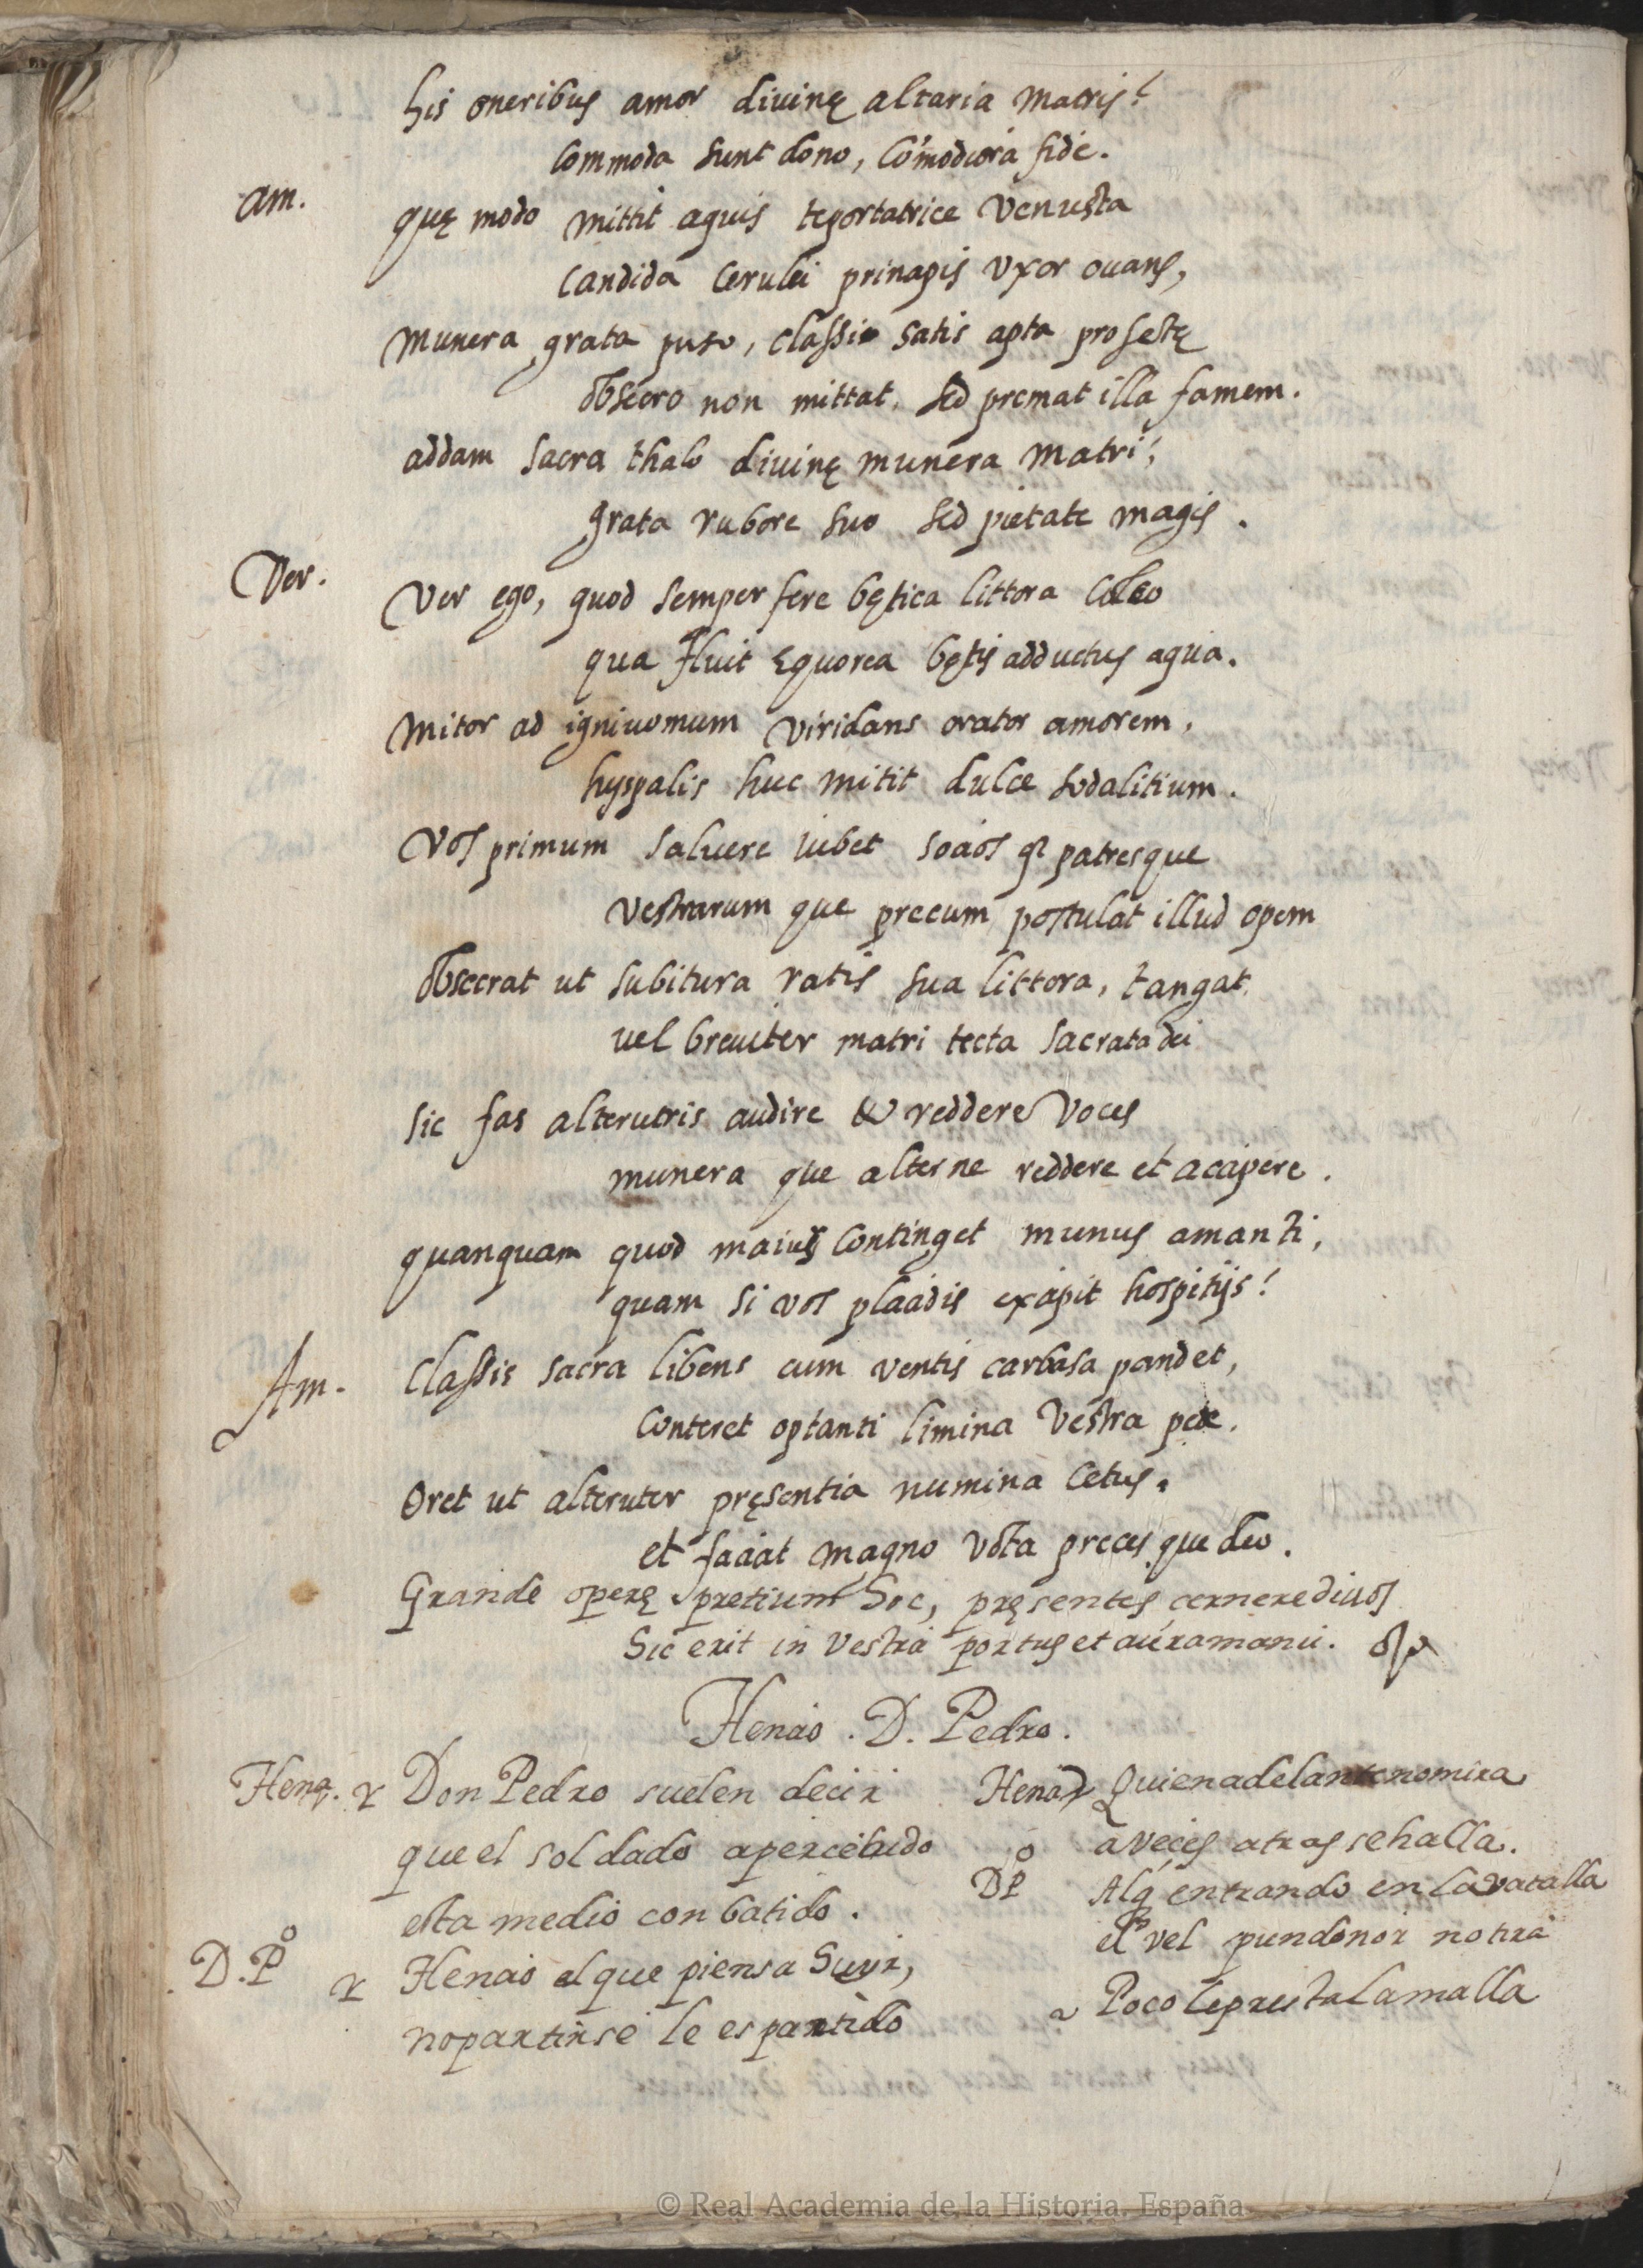 his oneribus amor diuinę altaria Matris!
Commoda sunt dono, Comodiora fide.
am. quę modo mittit aquis teportatrice Venusta
Candida Cerulei principis Vxor ouans,
Munera grata puto, classi satis apta profectę
obsecro non mittat, sed premat illa famem.
addam sacra thalo diuinę munera Matri;
grata rubore suo sed pietate magis.
Ver. Ver ego, quod semper fere bętica littora Coleo
qua fluit ęquorea bętis adductus aqua.
Mitor ad igniuomum viridans orator amorem,
hyspalis huc mitit dulce sodalitium.
Vos primum saluere iubet socios q patresque
Vestrarum que precum postulat illud opem
obsecrat ut subitura ratis sua littora, tangat
uel breuiter matri tecta sacrata dei
Sic fas alterutris audire & reddere Voces
munera que alterne reddere et accipere.
quanquam quod maius Continget munus amanti,
quam si vos placidis excipit hospitijs!
Am. Classis sacra libens cum ventis carbasa pandet,
Conteret optanti limina Vestra pede.
Oret ut alteruter pręsentia numina Cetus.
et faciat magno Vota preces que deo.
Grande operę pretium hoc, pręsentes cernere diuos
Sic erit in Vestra portus et aura manu.
Henao. D. Pedro.
Hena. r Don Pedro suelen decir
que el soldado apercebudo
esta medio conbatido.
D. Pº r Henao el que piensa Suyr,
nopartirse le es partido
Henao Quien adelante no mira
a veces atras se halla.
D Pº Alq entrando en la vatalla
el vel pundonor no tira
a Poco le presta la malla
© Real Academia de la Historia. España